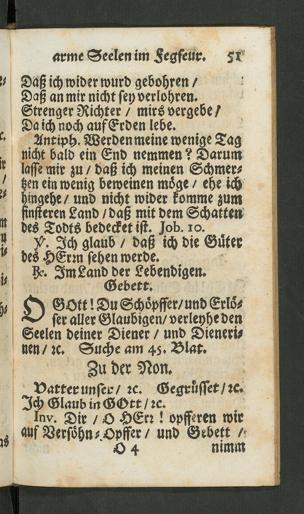 arme Seelen im Fegfeur. 51
Daß ich wider wurd gebohren /
Daß an mir nicht sey verlohren.
Strenger Richter / mirs vergebe /
Da ich noch auf Erden lebe.
Antiph. Werden meine wenige Tag
nicht bald ein End nemmen? Darum
lasse mir zu / daß ich meinen Schmer-
tzen ein wenig beweinen möge / ehe ich
hingehe / und nicht wider komme zum
finsteren Land / daß mit dem Schatten
des Todts bedecket ist. Job. 10.
℣. Ich glaub / daß ich die Güter
des HErrn sehen werde.
℟. Im Land der Lebendigen.
Gebett.
O GOtt! Du Schöpffer / und Erlö-
ser aller Glaubigen / verleyhe den
Seelen deiner Diener / und Dieneri-
nen / ꝛc. Suche am 45. Blat.
Zu der Non.
Vatter unser / ꝛc. Gegrüsset / ꝛc.
Ich Glaub in GOtt / ꝛc.
Inv. Dir / O HErr! opfferen wir
auf Versöhn-Opffer / und Gebett /
O 4 nimm